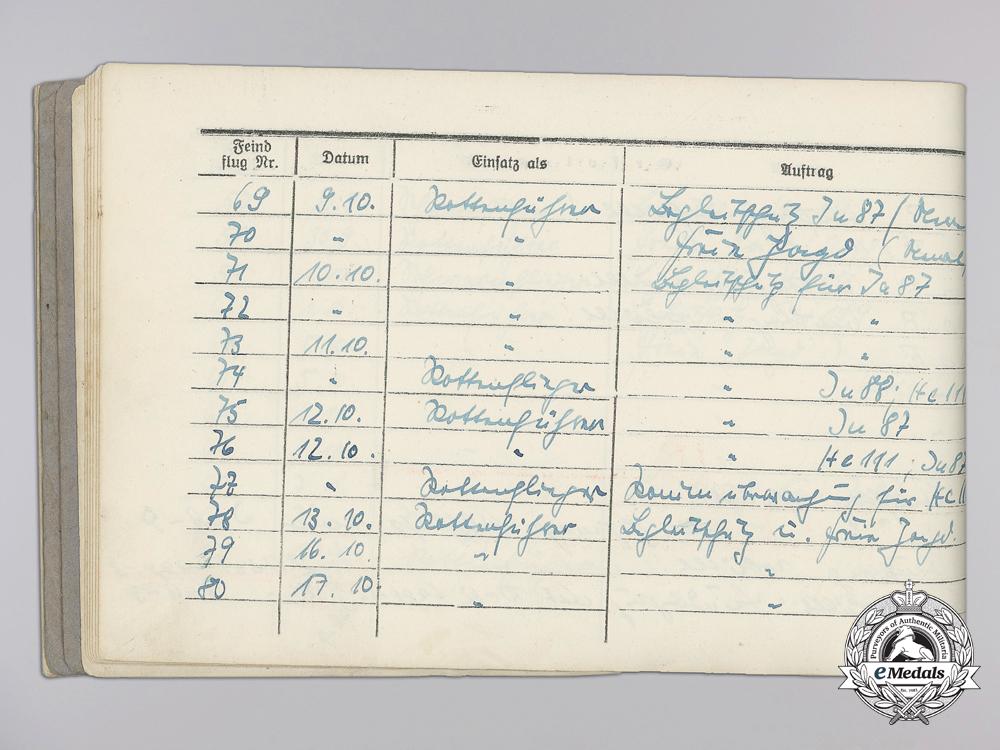 Feind
flug Nr. Datum Einsatz als Auftrag
69 9.10. Rottenführer Begleitschutz Ju 87 (
70 " " freie Jagd (
71 10.10. " Begleitschutz für Ju 87
72 " " " "
73 11.10. " " "
74 " Rottenflieger " Ju 88; He 111
75 12.10. Rottenführer " Ju 87
76 12.10. " " He 111; Ju 87
77 " Rottenflieger Raumüberwachung für He 11
78 13.10. Rottenführer Begleitschutz u. freie Jagd.
79 16.10. " "
80 17.10 " "
Purveyors of Authentic Militaria
eMedals
Est. 1985